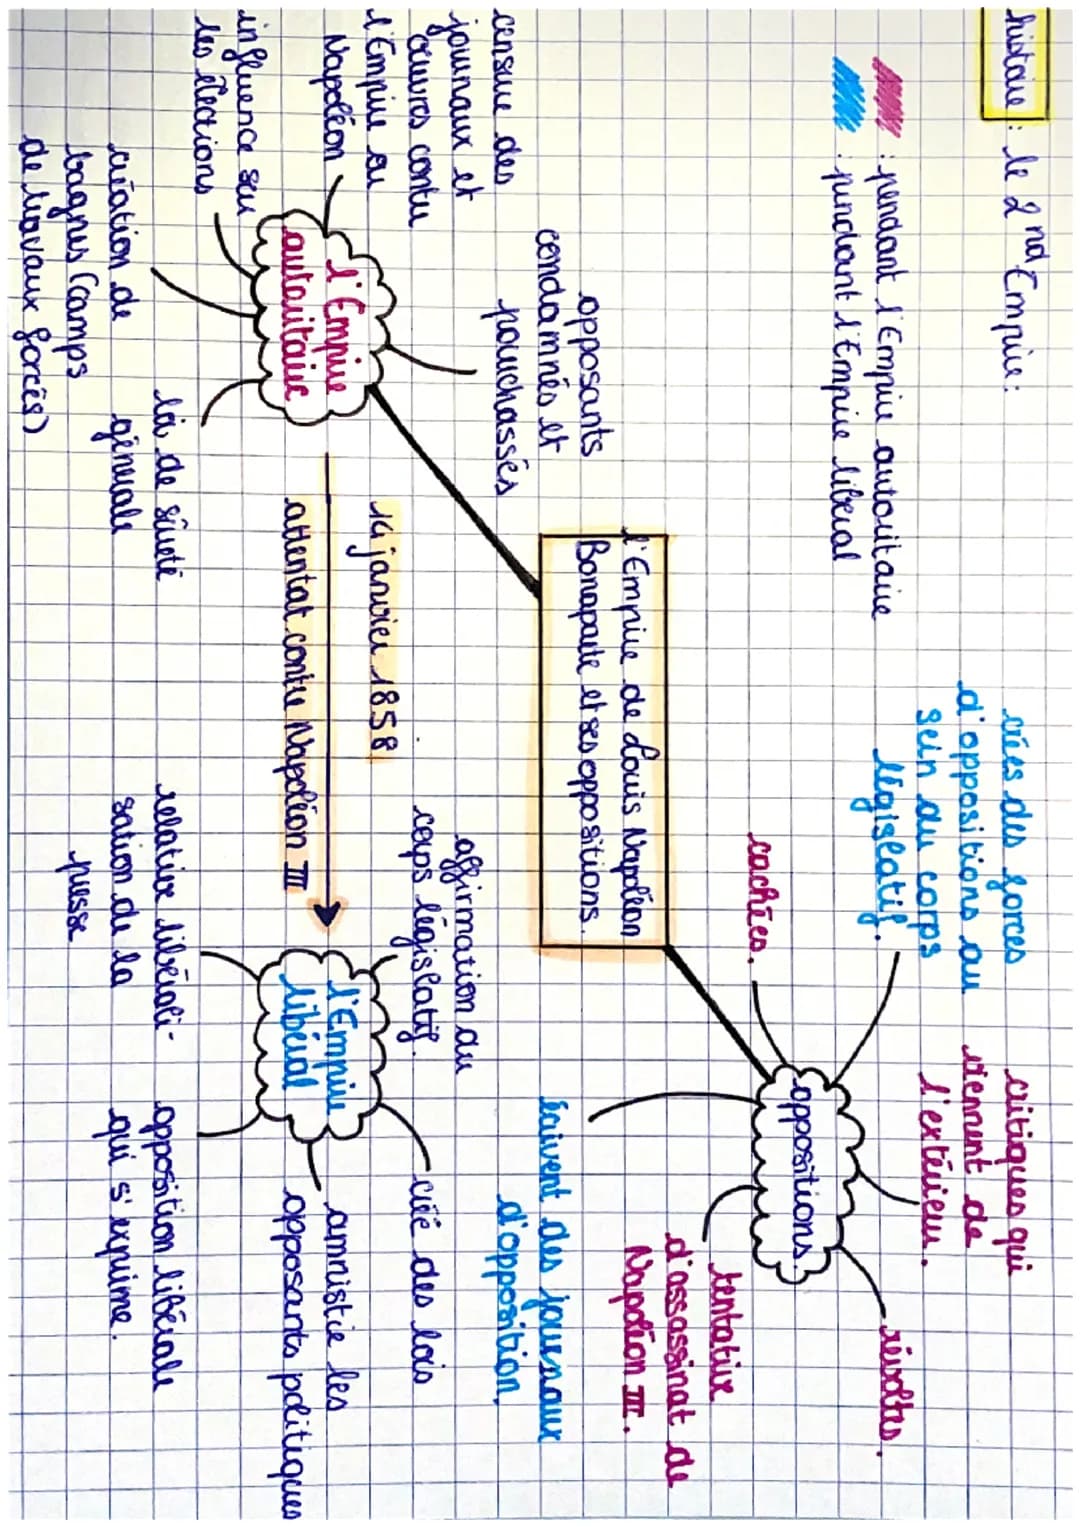 histoire : le 2nd Empire:
: pendant l'Empire autoritaire
: pendant l'Empire libéral
crées des forces
d'oppositions au
sein du corps
législatif.
critiques qui
viennent de
l'extérieur.
révoltes.
cachées.
oppositions.
tentative
d'assassinat de
Napoléon III.
écrivent des journaux
d'opposition.
l'Empire de Louis Napoléon
Bonaparte et ses oppositions.
opposants
condamnés et
pourchassés
censure des
journaux et
œuvres contre
l'Empire ou
Napoléon
influence sur
les élections
création de
bagnes (camps
de travaux forcés)
loi de sûreté
générale
l'Empire
autoritaire
14 janvier 1858
attentat contre Napoléon III
affirmation du
corps législatif.
l'Empire
libéral
créé des lois
amnistie les
opposants politiques
relative libérali-
sation de la
presse
opposition libérale
qui s'exprime.